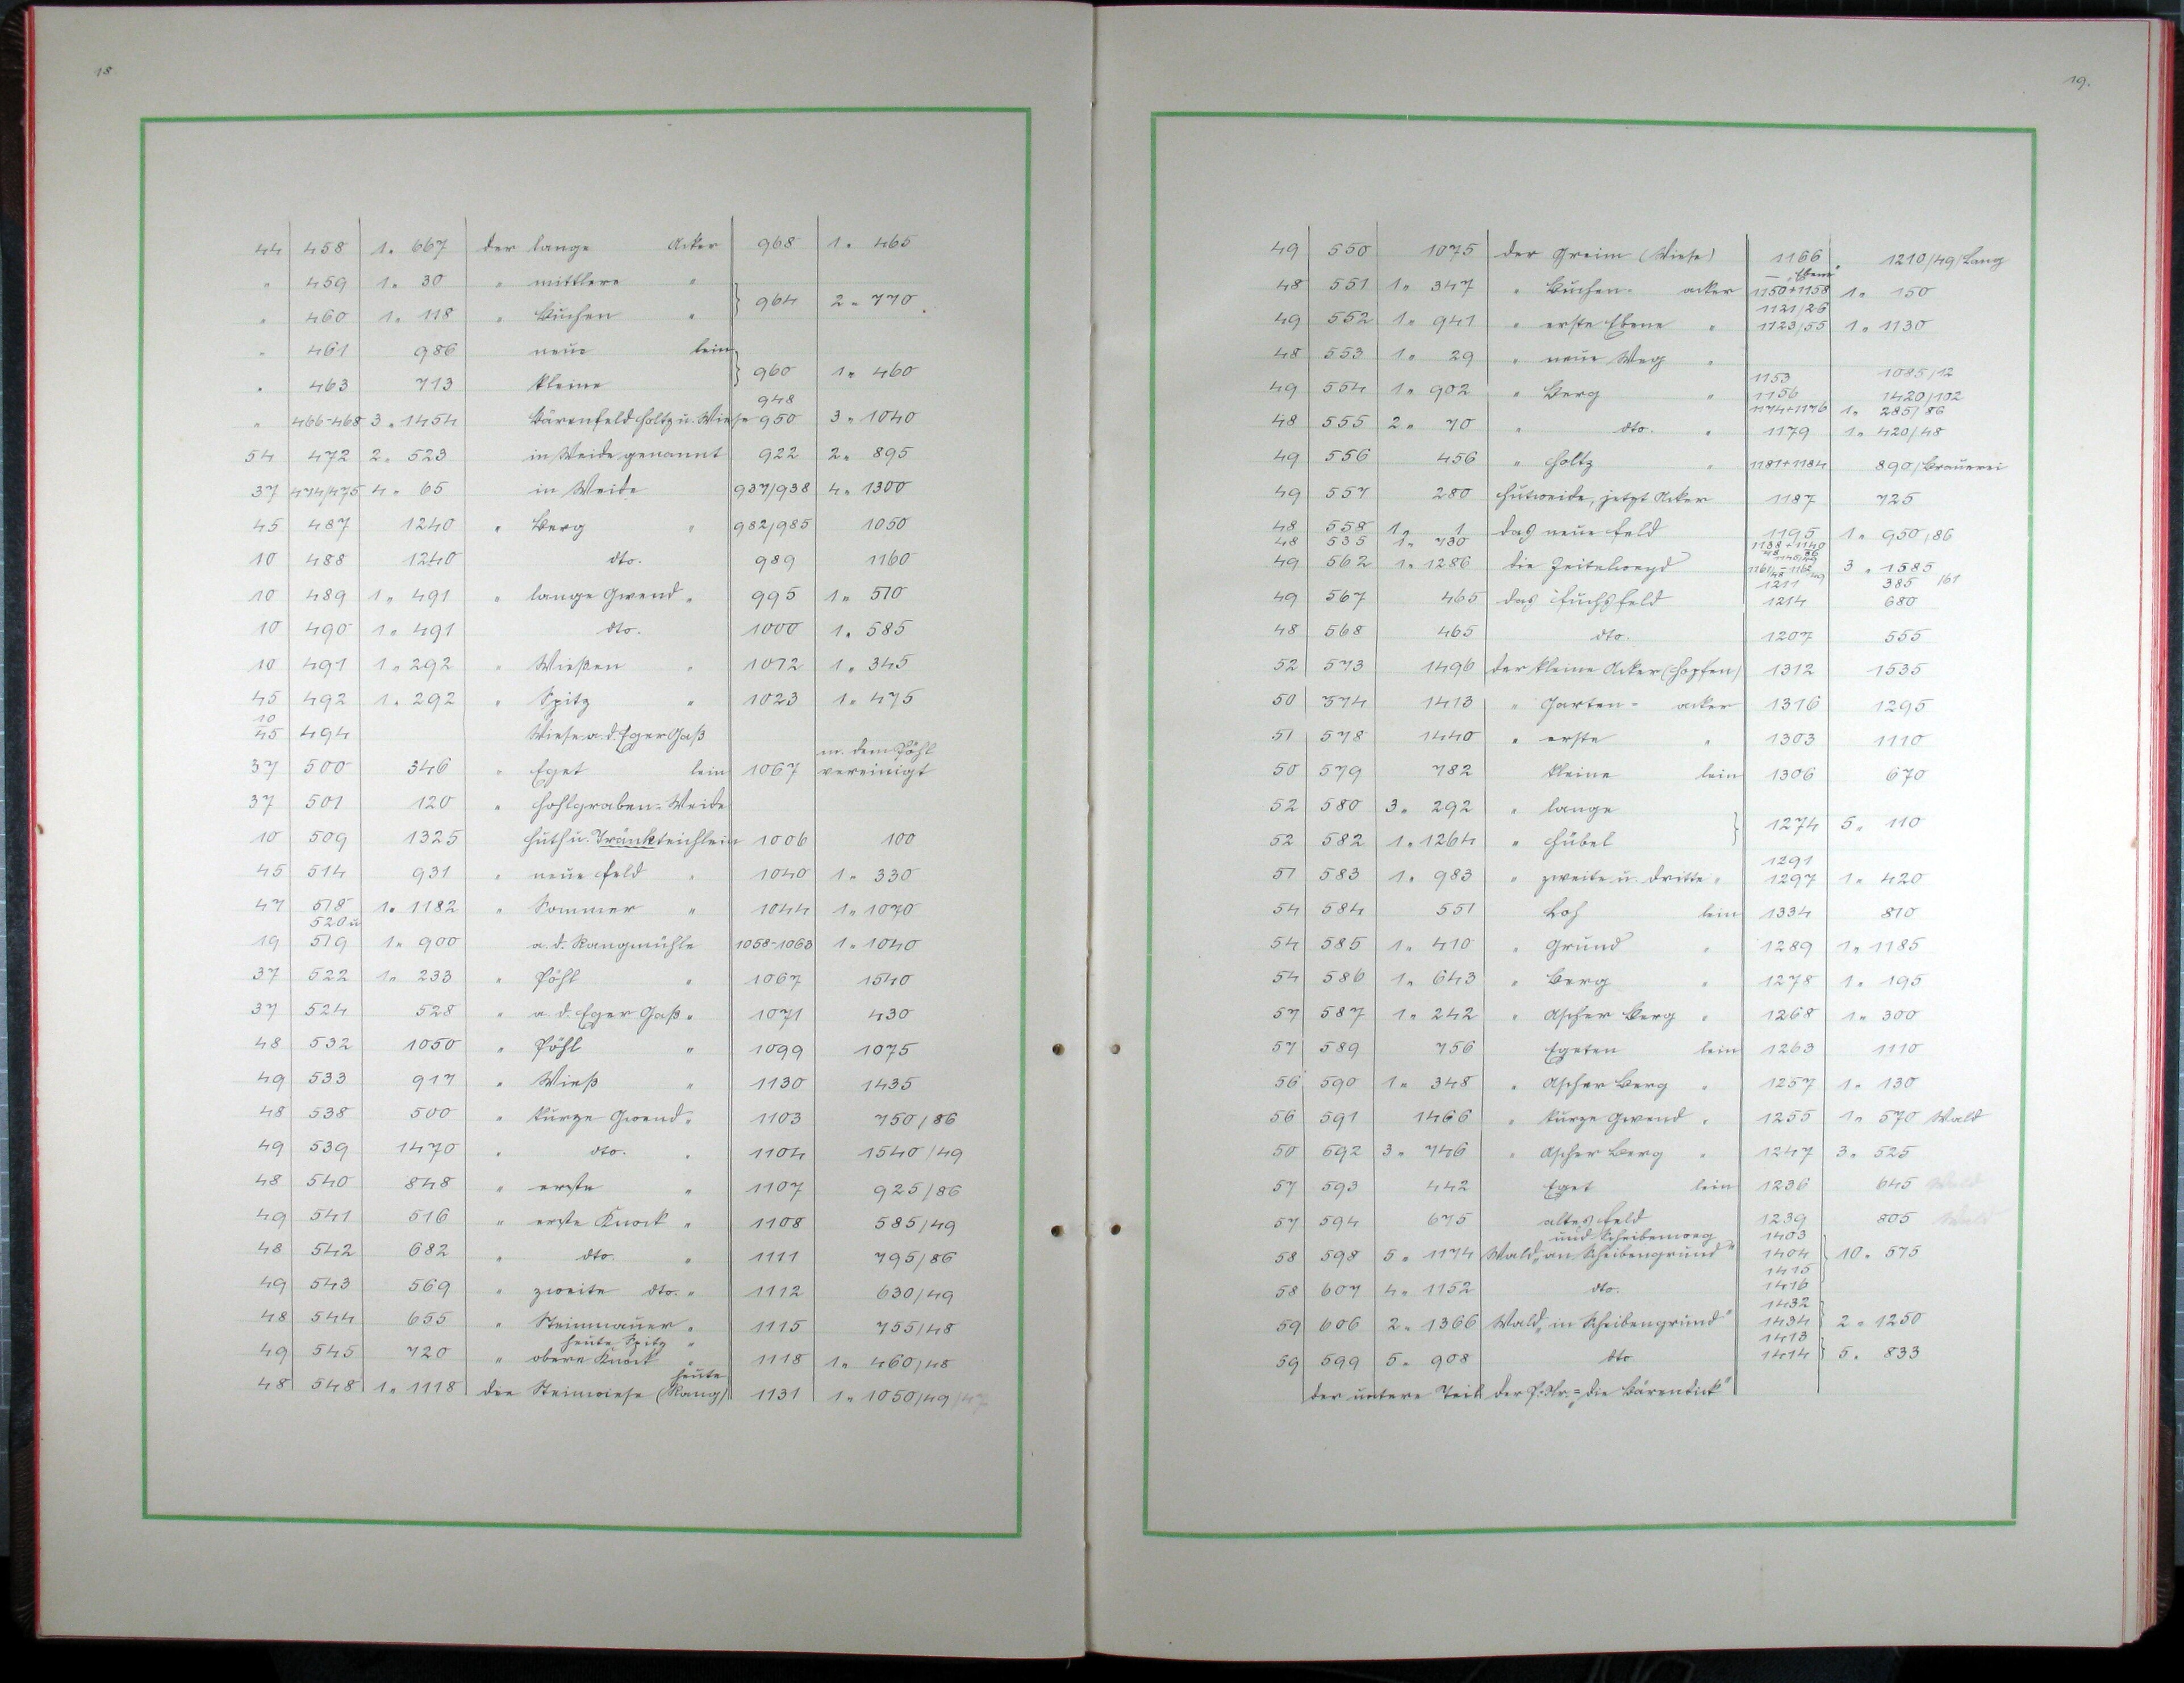 18
44 458 1. 667 der lange Acker 968 1. 465
" 459 1. 30 " mittlere "
" 460 1. 118 " Buchen " } 964 2. 770
" 461 986 neue lein
" 463 713 kleine } 960 1. 460
948
" 466-468 3. 1454 Bärenfeld Holtz u. Wiese 950 3. 1040
54 472 2. 523 in Weide genannt 922 2. 895
37 474/475 4. 65 in Weide 937/938 4. 1300
45 487 1240 " Berg " 982/985 1050
10 488 1240 dto. 989 1160
10 489 1. 491 " lange Gwend " 995 1. 510
10 490 1. 491 dto. 1000 1. 585
10 491 1. 292 " Wießen " 1012 1. 345
45 492 1. 292 " Spitz " 1023 1. 475
10
45 494 Wiese a. d. Eger Gaß
m. dem Pöhl
37 500 346 " Eget lein 1067 vereinigt
37 501 120 " Hohlgraben-Weide
10 509 1325 Huth u. Tränkteichlein 1006 100
45 514 931 " neue Feld " 1040 1. 330
47 518 1. 1182 " Sommer " 1044 1. 1070
520 u
19 519 1. 900 a. d. Rangmühle 1058-1063 1. 1040
37 522 1. 233 " Pöhl " 1067 1540
37 524 528 " a. d. Eger Gaß " 1071 430
48 532 1050 " Pöhl " 1099 1075
49 533 917 " Wieß " 1130 1435
48 538 500 " kurze Gwend " 1103 750/86
49 539 1470 " dto. " 1104 1540/49
48 540 848 " erste " 1107 925/86
49 541 516 " erste Knock " 1108 585/49
48 542 682 " dto. " 1111 795/86
49 543 569 " zweite dto. " 1112 630/49
48 544 655 " Steinmauer " 1115 755/48
heute Spitz "
49 545 720 " obere Knock " 1118 1. 460/48
heute
48 548 1. 1118 den Steinwiese (Rang) 1131 1. 1050/49/47
19.
49 550 1075 der Greim (Wiese) 1166 1210/49/Lang
48 551 1. 347 " Buchen- acker 1150+1158 1. 150
1121/26
49 552 1. 941 " erste Ebene " 1123/55 1. 1130
48 553 1. 29 " neue Weg "
1153 1085/12
49 554 1. 902 " Berg " 1156 1420/102
1174+1176 1. 285/86
48 555 2. 70 " dto. " 1179 1. 420/48
49 556 456 " Holtz " 1181+1184 890/Brauerei
49 557 280 Hutweide, jetzt Acker 1187 725
48 558 1. 1 das neue Feld 1195 1. 950/86
48 535 1. 730 1138+1140
49 562 1. 1286 die Zeitelweyd 3. 1585
1211 385 /61
49 567 465 das Fuchsfeld 1214 680
48 568 465 dto. 1207 555
52 573 1496 der kleine Acker (Hopfen) 1312 1535
50 574 1413 " Garten- acker 1316 1295
51 578 1440 " erste " 1303 1110
50 579 782 kleine lein 1306 670
52 580 3. 292 " lange
52 582 1. 1264 " Hübel } 1274 5. 110
1291
51 583 1. 983 " zweite u. dritte " 1297 1. 420
54 584 551 Loh lein 1334 810
54 585 1. 410 " Grund " 1289 1. 1185
54 586 1. 643 " Berg " 1278 1. 195
57 587 1. 242 " Ascher Berg " 1268 1. 300
57 589 756 Egeten lein 1263 1110
56 590 1. 348 " Ascher Berg " 1257 1. 130
56 591 1466 " kurze Gwend " 1255 1. 570 Wald
50 592 3. 746 " Ascher Berg " 1247 3. 525
57 593 442 Eget lein 1236 645 Wald
57 594 675 altes Feld 1239 805 Wald
und Scheibenweg 1403
58 598 5. 1174 Wald "an Scheibengrund" 1404 } 10. 575
1415
58 607 4. 1152 dto. 1416
1432
59 606 2. 1366 Wald "in Scheibengrund" 1434 } 2. 1250
1413
59 599 5. 908 dto. 1414 } 5. 833
der untere Teil der P.Nr. = "die Bärendick"